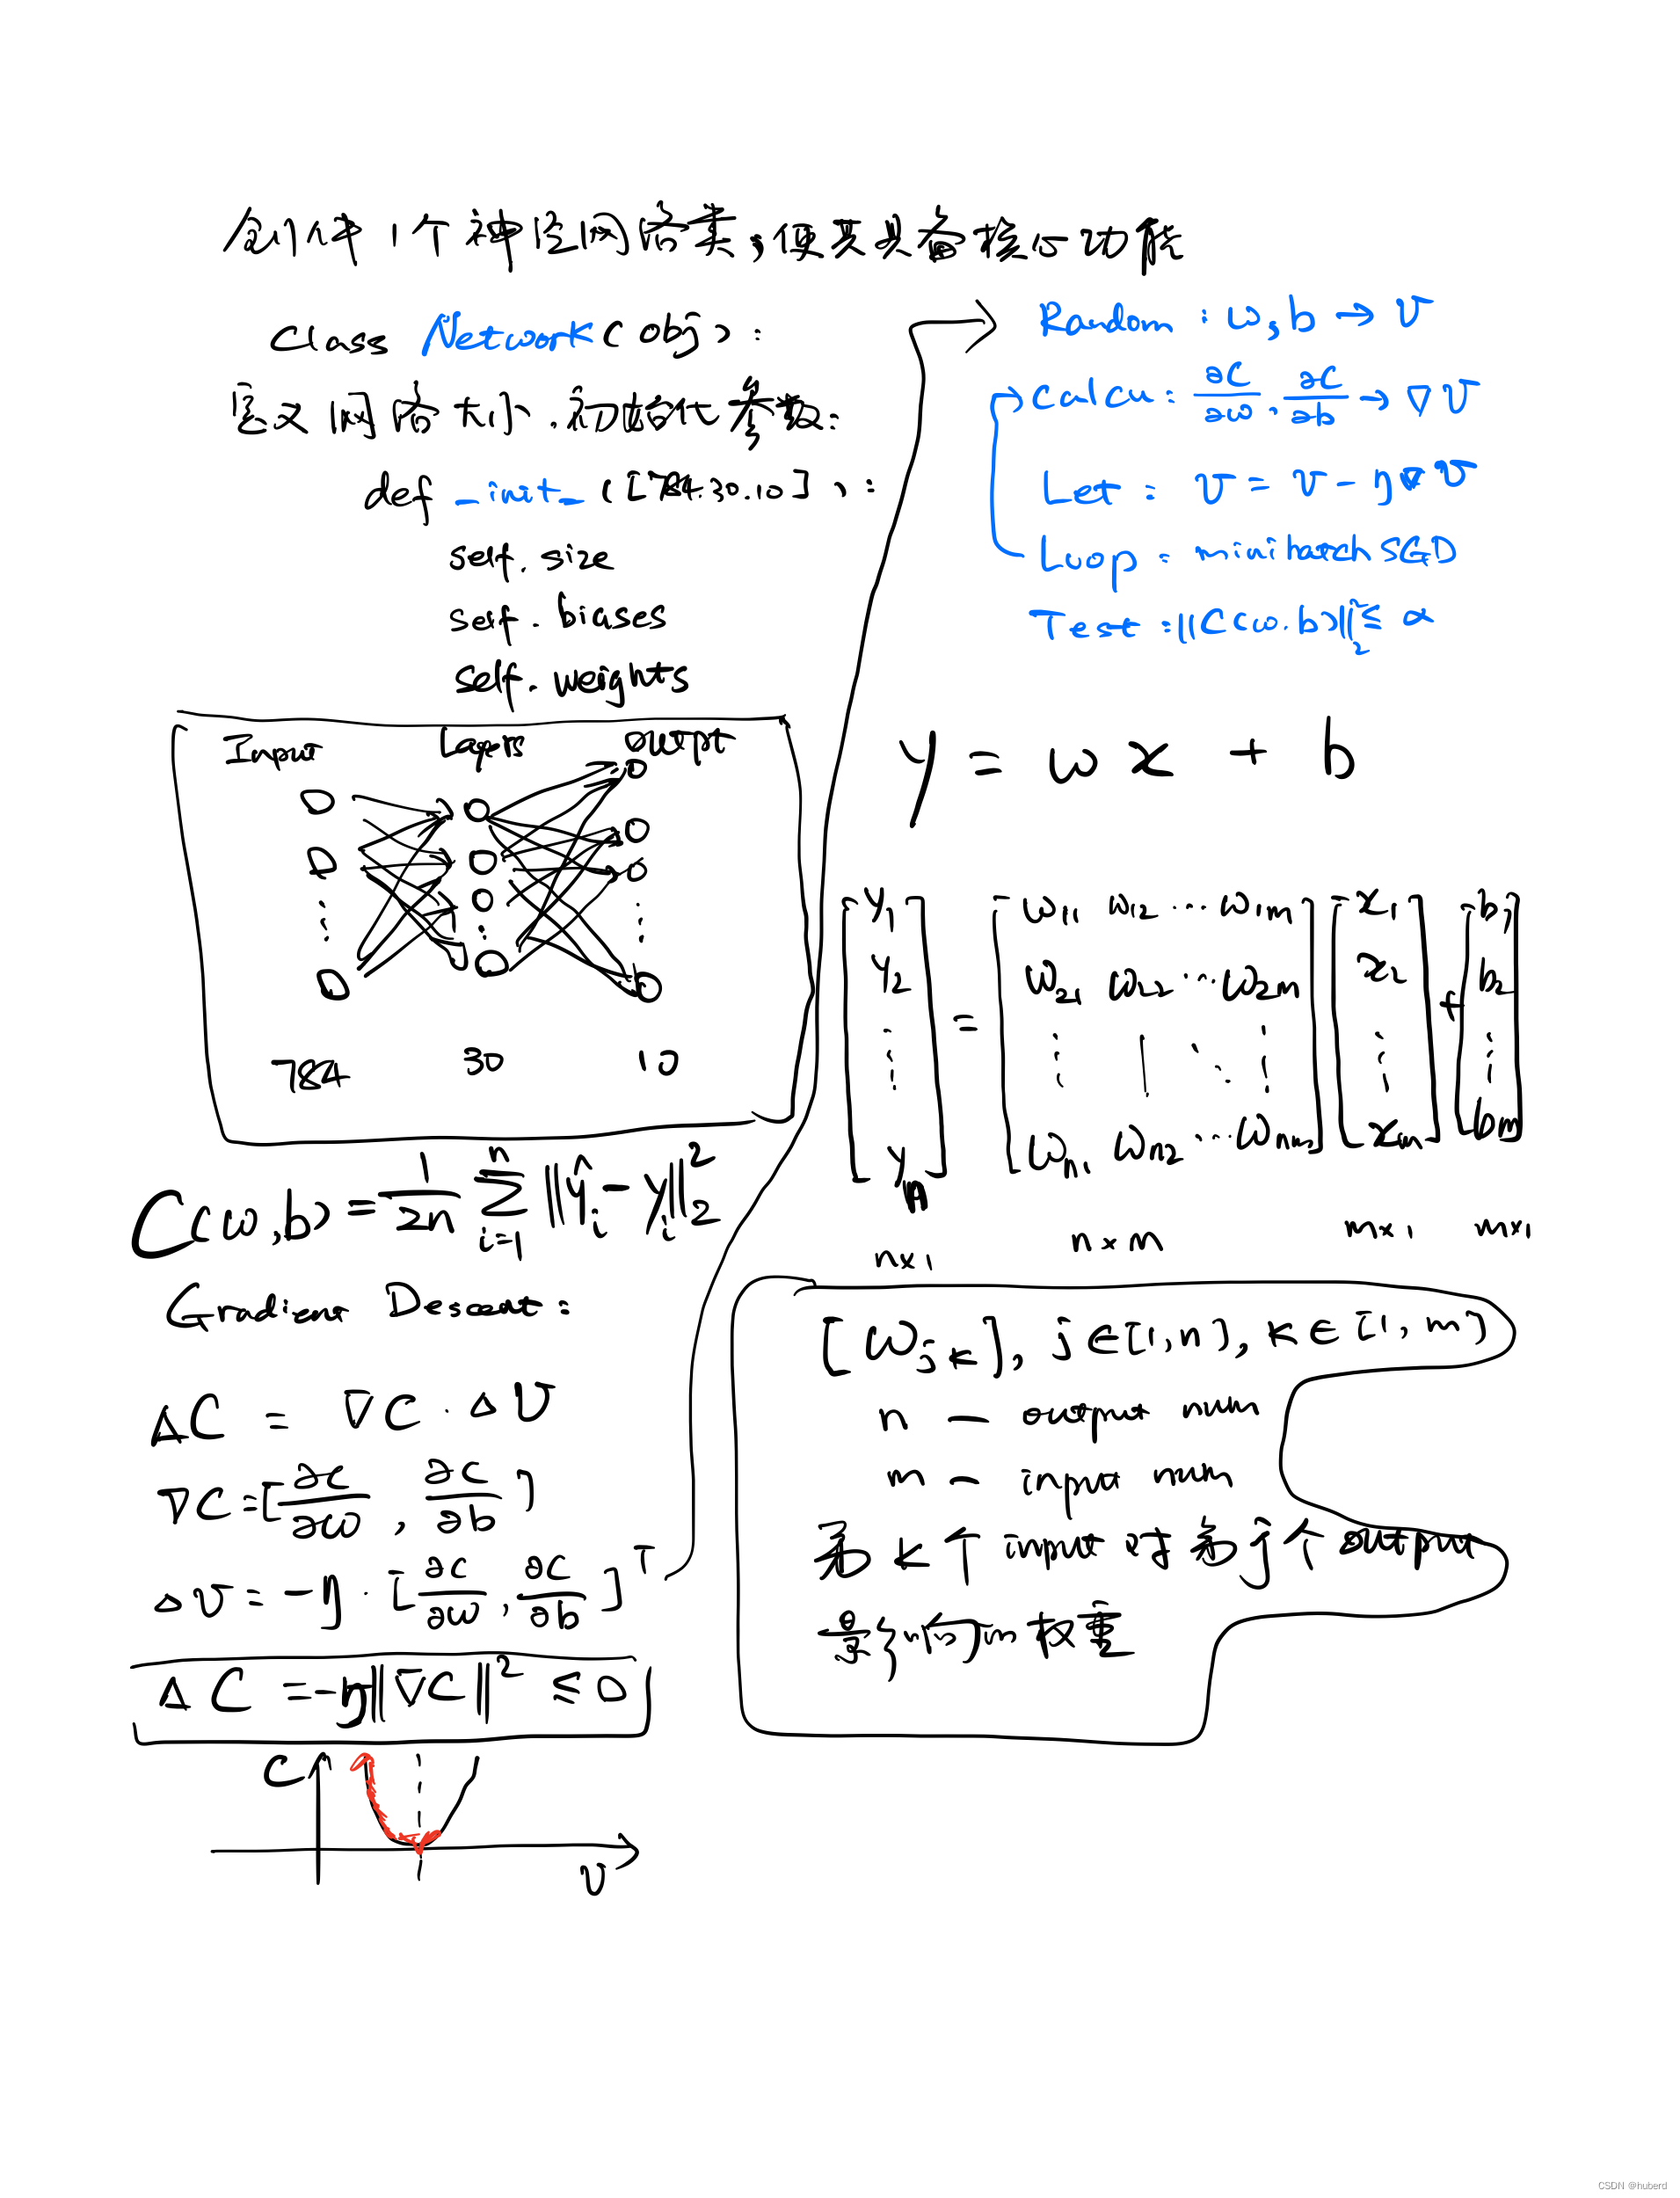 创作1个神经网络类,使其具备核心功能
Class Network(obj):
定义网络大小.初始化参数:
def _init_([784.30.10]):
self.size
self.biases
self.weights
Input Layers output
784 30 10
C(w,b) = \frac{1}{2n} \sum_{i=1}^{n} ||ŷ_i - y_i||_2^2
Gradient Descent:
ΔC = ∇C · Δv
∇C = [∂C/∂w, ∂C/∂b]
Δv = -η · [∂C/∂w, ∂C/∂b]^T
ΔC = -η||∇C||^2 ≤ 0
C
v
Random: w,b → v
Calcu: ∂C/∂w, ∂C/∂b → ∇v
Let: v = v - η∇v
Loop: minibatch SGD
Test: ||C(w.b)||_2^2 ≤ α
y = wx + b
y_1 w_11 w_12 ··· w_1m x_1 b_1
y_2 = w_21 w_22 ··· w_2m x_2 + b_2
y_n w_n1 w_n2 ··· w_nm x_m b_m
n×1 n×m m×1 m×1
[w_jk], j∈[1,n], k∈[1,m]
n — output num
m — input num
第k个input对第j个output
影响的权重
CSDN @huberd